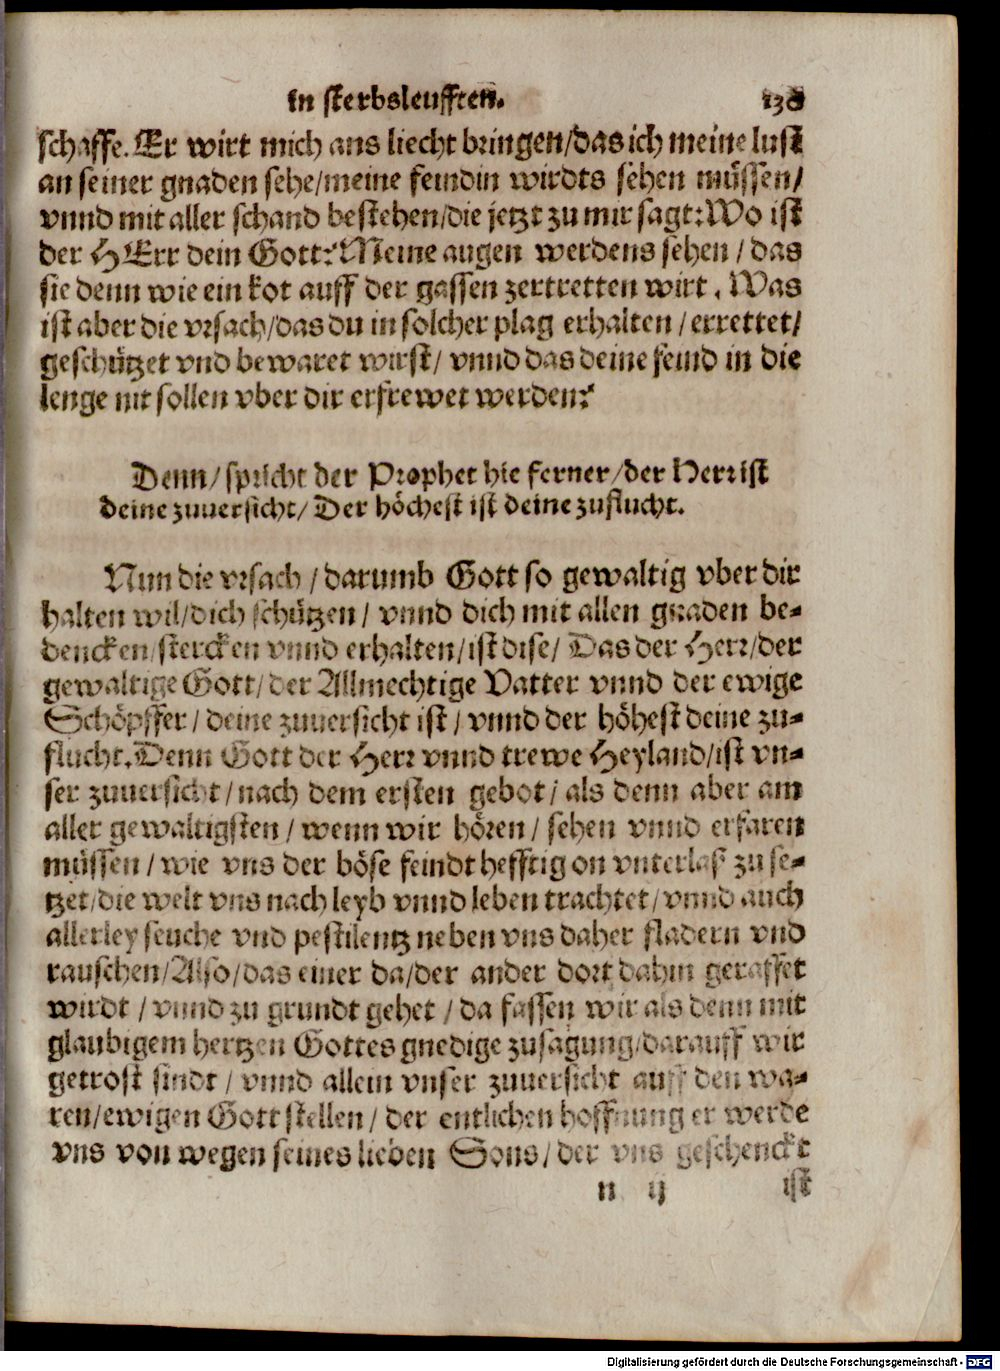 in sterbsleufften.
schaffe. Er wirt mich ans liecht bringen/das ich meine lust
an seiner gnaden sehe/meine feindin wirdts sehen müssen/
vnnd mit aller schand bestehen/die jetzt zu mir sagt: Wo ist
der HErr dein Gott? Meine augen werdens sehen / das
sie denn wie ein kot auff der gassen zertretten wirt. Was
ist aber die vrsach/das du in solcher plag erhalten / errettet/
geschützet vnd bewaret wirst/ vnnd das deine feind in die
lenge nit sollen vber dir erfrewet werden?
Denn/spricht der Prophet hie ferner/der Herr ist
deine zuuersicht/ Der höchest ist deine zuflucht.
Nun die vrsach / darumb Gott so gewaltig vber dir
halten wil/dich schützen / vnnd dich mit allen gnaden be-
dencken/stercken vnnd erhalten/ist dise/ Das der Herr/der
gewaltige Gott/der Allmechtige Vatter vnnd der ewige
Schöpffer/ deine zuuersicht ist / vnnd der höhest deine zu-
flucht. Denn Gott der Herr vnnd trewe Heyland/ist vn-
ser zuuersicht/nach dem ersten gebot / als denn aber am
aller gewaltigsten / wenn wir hören / sehen vnnd erfaren
müssen / wie vns der böse feindt hefftig on vnterlaß zu se-
tzet/die welt vns nach leyb vnnd leben trachtet/ vnnd auch
allerley seuche vnd pestilentz neben vns daher fladern vnd
rauschen/Also/das einer da/der ander dort dahin geraffet
wirdt / vnnd zu grundt gehet / da fassen wir als denn mit
glaubigem hertzen Gottes gnedige zusagung/darauff wir
getrost sindt / vnnd allein vnser zuuersicht auff den wa-
ren/ewigen Gott stellen / der entlichen hoffnung er werde
vns von wegen seines lieben Sons/der vns geschenckt
n ij ist
Digitalisierung gefördert durch die Deutsche Forschungsgemeinschaft - DFG